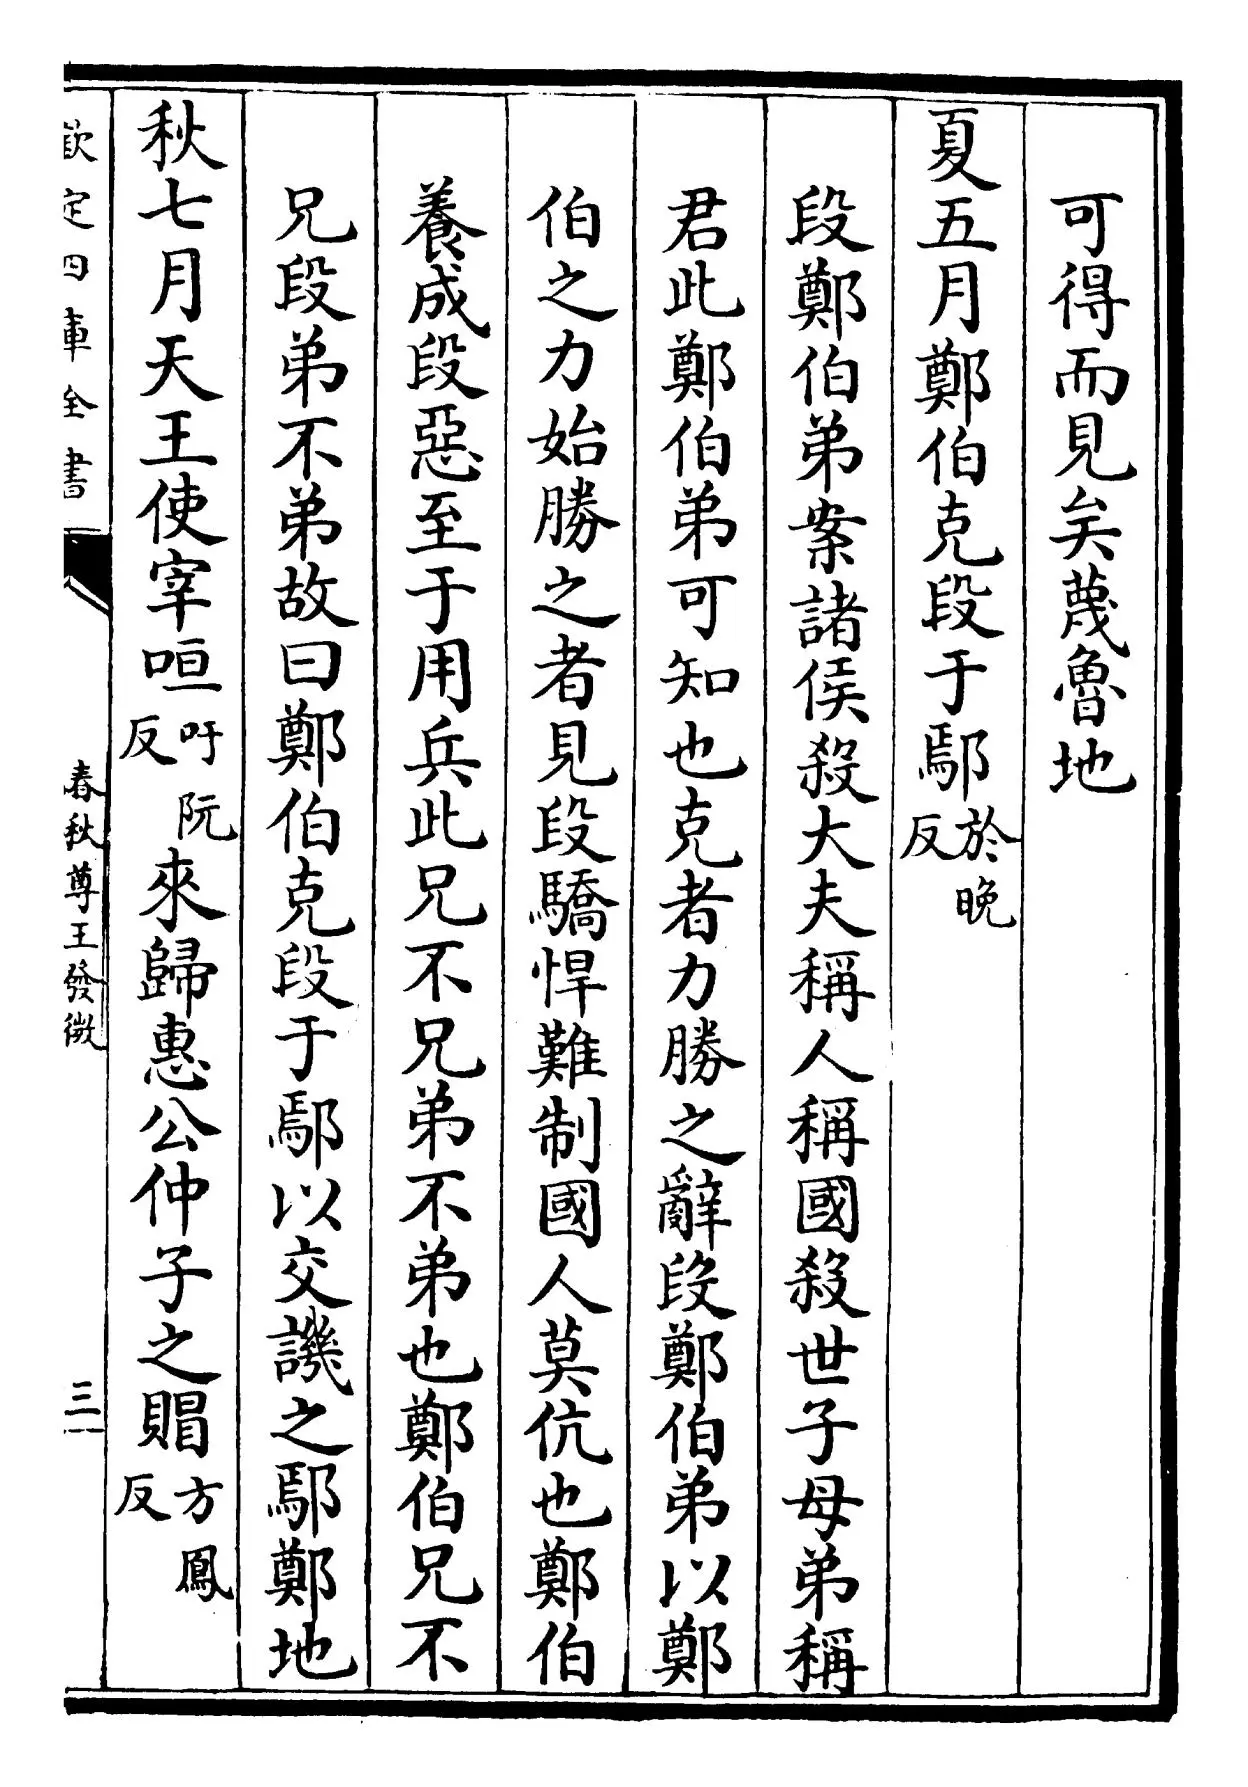 可得而見矣蔑魯地
夏五月鄭伯克段于鄢於晚反
段鄭伯弟案諸侯殺大夫稱人稱國殺世子母弟稱
君此鄭伯弟可知也克者力勝之辭段鄭伯弟以鄭
伯之力始勝之者見段驕悍難制國人莫伉也鄭伯
養成段惡至于用兵此兄不兄弟不弟也鄭伯兄不
兄段弟不弟故曰鄭伯克段于鄢以交譏之鄢鄭地
秋七月天王使宰咺吁阮反來歸惠公仲子之賵方鳳反
欽定四庫全書
春秋尊王發微
三